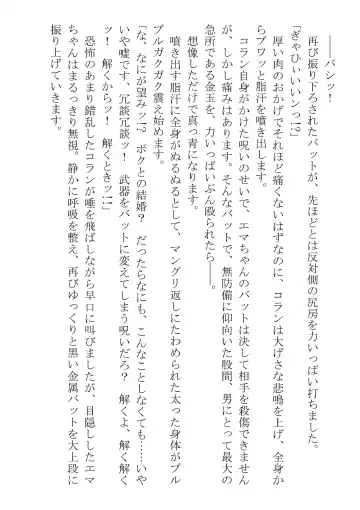 ――バシッ！
　再び振り下ろされたバットが、先ほどとは反対側の尻房を力いっぱい打ちました。
「ぎゃひぃいいンっ⁉」
　厚い肉のおかげでそれほど痛くないはずなのに、コランは大げさな悲鳴を上げ、全身か
らブワッと脂汗を噴き出します。
　コラン自身がかけた呪いのせいで、エマちゃんのバットは決して相手を殺傷できません
が、しかし痛みはあります。そんなバットで、無防備に仰向いた股間、男にとって最大の
急所である金玉を、力いっぱいぶん殴られたら――。
　想像しただけで真っ青になります。
　噴き出す脂汗に全身がぬるぬるとして、マングリ返しにたわめられた太った身体がブル
ブルガクガク震え始めます。
「な、なにが望みッ⁉　ボクとの結婚？　だったらなにも、こんなことしなくても……いや
いや嘘です、冗談冗談ッ！　武器をバットに変えてしまう呪いだろ？　解くよ、解く解く
ッ！　解くからッ！　解くときッ‼」
　恐怖のあまり錯乱したコランが唾を飛ばしながら早口に叫びましたが、目隠ししたエマ
ちゃんはまるっきり無視。静かに呼吸を整え、再びゆっくりと黒い金属バットを大上段に
振り上げていきます。